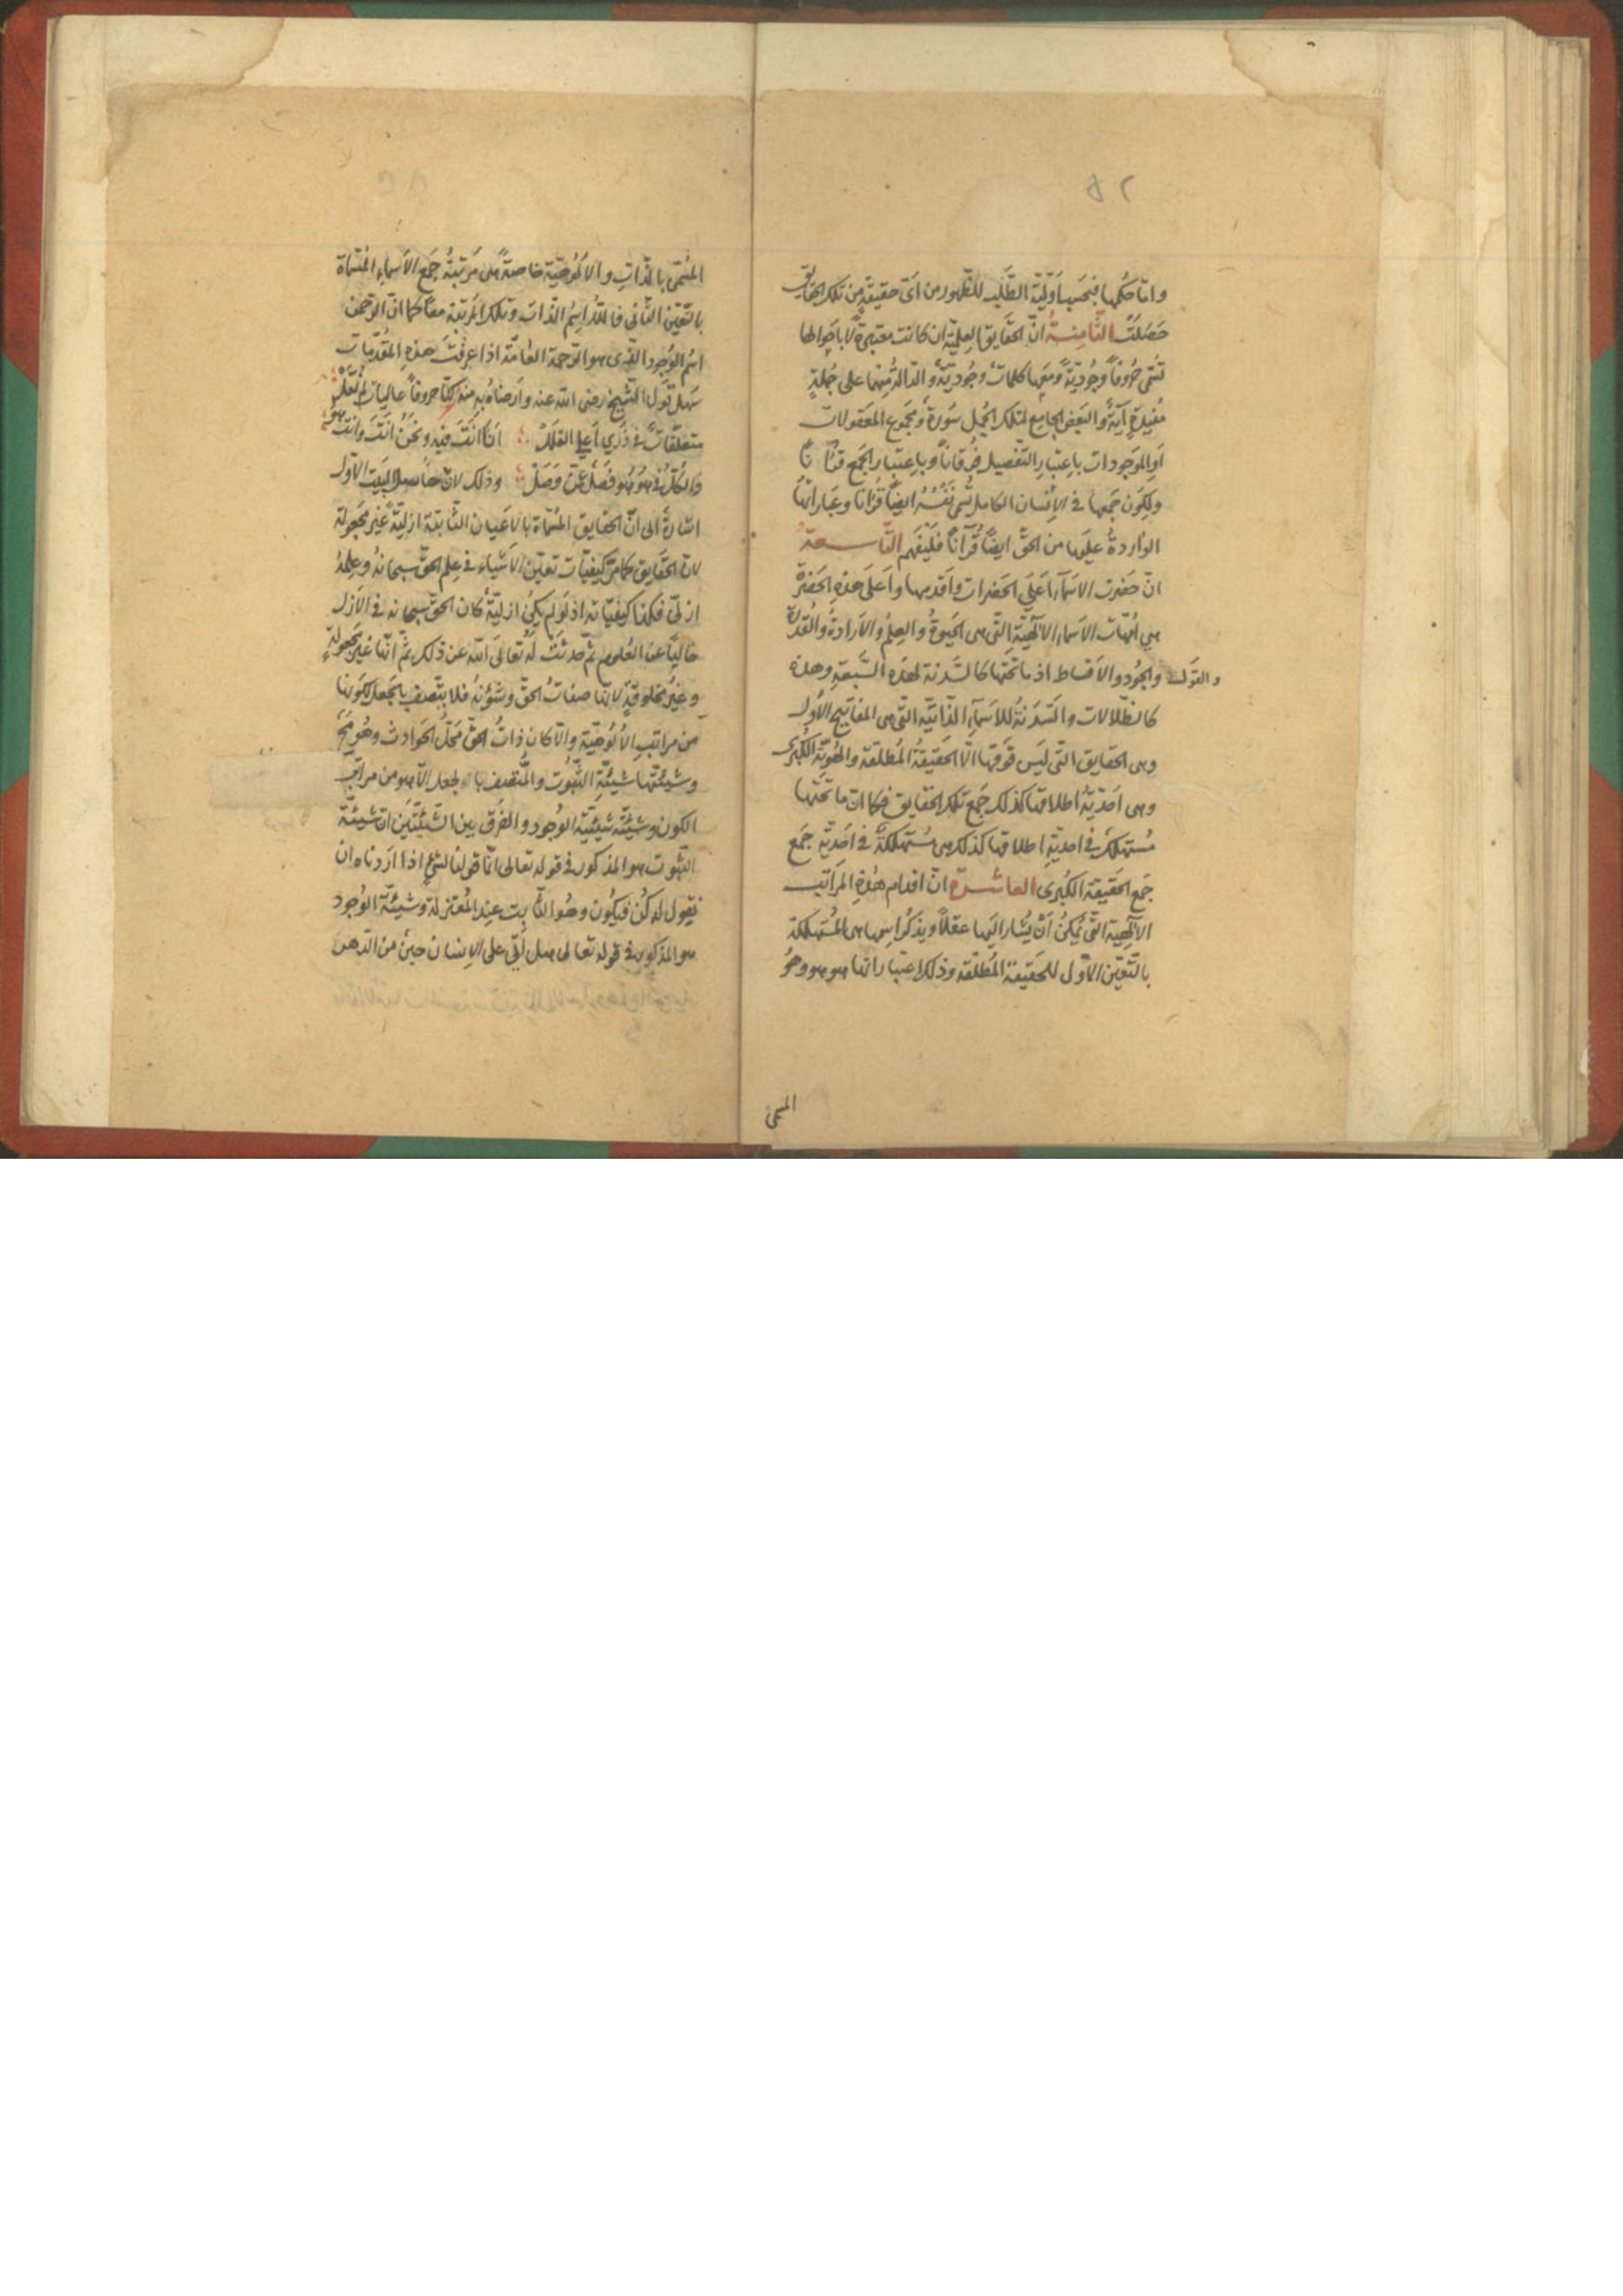 ٥٢
واما حكمها فبحسب اولية الطلب للظهور من اى حقيقة من تلك الحقايق
حصلت الثامنة ان الحقايق العلمية ان كانت معتبرة لا باحوالها
تسمى حروفاً وجودية ومعها كلمات وجودية والدالة منها على جملة
مفيدة آية والبعض الجامع لتلك الجمل سورة ومجموع المعقولات
او الموجودات باعتبار التفصيل فرقاناً وباعتبار الجمع قرآنًا
ولكون جمعها فى الانسان الكامل تسمى نفسه ايضاً قرآنا وعباراتها
الواردة عليها من الحق ايضاً قرآناً فليفهم التاسعة
ان حضرت الاسماء اعلى الحضرات واقدمها واعلى هذه الحضرة
هي امهات الاسماء الالهية التى هى الحيوة والعلم والارادة والقدرة
والقول والجود والاقساط اذ ما تحتها كالسدنة لهذه السبعة وهذه
كالظلالات والسدنة للاسماء الذاتية التى هى المفاتيح الاول
وهى الحقايق التى ليس فوقها الا الحقيقة المطلقة والهوية الكبرى
وهى احدية اطلاقها كذلك جمع تلك الحقايق فكما ان ما تحتها
مستهلك فى احدية اطلاقها كذلك هى مستهلكة فى احدية جمع
جمع الحقيقة الكبرى العاشرة ان اقدام هذه المراتب
الالهية التى يمكن ان يشار اليها عقلاً ويذكر اسمها هى المستهلكة
بالتعين الاول للحقيقة المطلقة وذلك اعتبار انها هو هو وهو
المسمى
المسمى بالذات والالوهية خاصة هى مرتبة جمع الاسماء المسماة
بالتعين الثانى فالله اسم الذات وتلك المرتبة معاً كما ان الرحمن
اسم الوجود الذى هو الرحمة العامة اذا عرفت هذه المقدمات
سهل قول الشيخ رضى الله عنه وارضاه به منه كنا حروفاً عاليات لم نقل
متعلقات فى ذرى اعلى القلل انا انت فيه ونحن انت وانت هو
والكل فى هو هو فسل عمن وصل وذلك لان حاصل البيت الاول
اشارة الى ان الحقايق المسماة بالاعيان الثابتة ازلية غير مجعولة
لان الحقايق كما مر كيفيات تعين الاشياء فى علم الحق سبحانه وعلمه
ازلى فكذا كيفياته اذ لو لم يكن ازلية كان الحق سبحانه فى الازل
خالياً عن العلوم ثم حدثت له تعالى الله عن ذلك ثم انها غير مجعولة
وغير مخلوقة لانها صفات الحق وشؤنه فلا يتصف بالجعل لكونها
من مراتب الالوهية والا كان ذات الحق محل الحوادث وهو مح
وشيئتها شيئية الثبوت والمتصف بالجعل الا هو من مراتب
الكون وشيئته شيئية الوجود والفرق بين الشيئتين ان شيئية
الثبوت هو المذكور فى قوله تعالى انما قولنا لشئ اذا اردناه ان
نقول له كن فيكون وهو الثابت عند المعتزلة وشيئية الوجود
هو المذكور فى قوله تعالى هل اتى على الانسان حين من الدهر